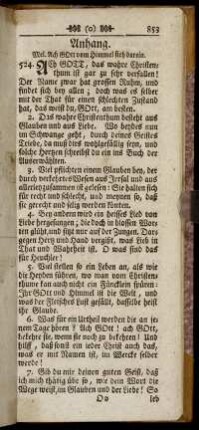 (o) 853
Anhang.
Mel. Ach GOtt vom Himmel sieh darein.
524. ACh GOTT, das wahre Christen-
thum ist gar zu sehr verfallen!
Der Name zwar hat grossen Ruhm, und
findet sich bey allen; doch was es selber
mit der That für einen schlechten Zustand
hat, das weist du, GOtt, am besten.
2. Das wahre Christenthum besteht aus
Glauben und aus Liebe. Wo beydes nun
im Schwange geht, durch deines Geistes
Triebe, da must dus wohlgefällig seyn, und
solche Hertzen schreibst du ein ins Buch der
Auserwählten.
3. Viel tichten einen Glauben her, der
durch verkehrtes Wesen aus Irrsal und aus
allerley zusammen ist gelesen: Sie halten sich
für recht und schlecht, und meynen so, daß
sie gerecht und selig werden müsten.
4. Bey andern wird ein heisses Lied von
Liebe hergesungen; die doch in blossen Wor-
ten glüht und sitzt nur auf der Zungen. Dar-
gegen Hertz und Hand vergißt, was Lieb in
That und Wahrheit ist. O was sind das
für Heuchler!
5. Viel stellen so ihr Leben an, als wie
die Heyden führen, wo man vom Christen-
thume kan auch nicht ein Füncklein spüren:
Ihr GOtt und Himmel ist die Welt, und
was der Fleisches Lust gefällt, dasselbe heist
ihr Glaube.
6. Was für ein Urtheil werden die an je-
nem Tage hören? Ach GOtt! ach GOtt,
bekehre sie, wenn sie noch zu bekehren! Und
hilf, daß sonst ein ieder Christ auch das,
was er mit Namen ist, im Wercke selber
werde!
7. Gib du mir deinen guten Geist, daß
ich mich thätig übe so, wie dein Wort die
Wege weist, im Glauben und der Liebe! So
Oo leb